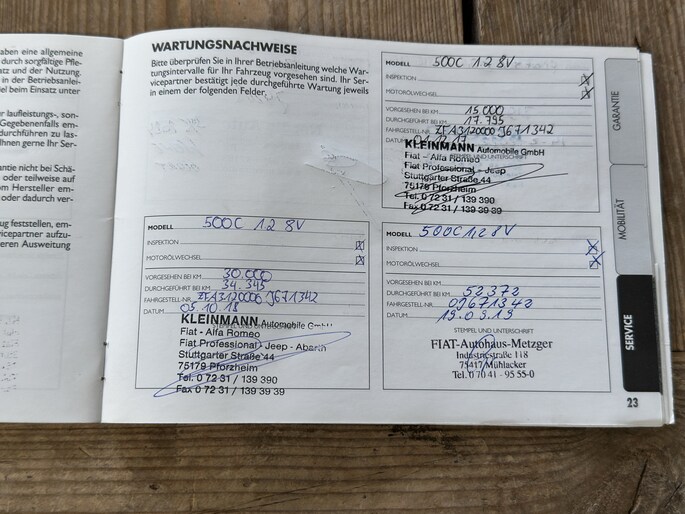 aben eine allgemeine
durch sorgfältige Pfle-
tz und der Nutzung.
in der Betriebsanlei-
el beim Einsatz unter
ur laufleistungs-, son-
Gegebenenfalls em-
durchführen zu las-
Ihnen gerne Ihr Ser-
antie nicht bei Schä-
oder teilweise auf
om Hersteller em-
oder dadurch ver-
ug feststellen, em-
vicepartner aufzu-
eren Ausweitung
WARTUNGSNACHWEISE
Bitte überprüfen Sie in Ihrer Betriebsanleitung welche War-
tungsintervalle für Ihr Fahrzeug vorgesehen sind. Ihr Ser-
vicepartner bestätigt jede durchgeführte Wartung jeweils
in einem der folgenden Felder.
MODELL 500C 1.2 8V
INSPEKTION X
MOTORÖLWECHSEL X
VORGESEHEN BEI KM 15.000
DURCHGEFÜHRT BEI KM 17.795
FAHRGESTELL-NR. ZFA3120000J671342
DATUM
STEMPEL UND UNTERSCHRIFT
KLEINMANN Automobile GmbH
Fiat - Alfa Romeo
Fiat Professional - Jeep
Stuttgarter Straße 44
75179 Pforzheim
Tel. 0 72 31 / 139 390
Fax 0 72 31 / 139 39 39
MODELL 500C 1.2 8V
INSPEKTION X
MOTORÖLWECHSEL X
VORGESEHEN BEI KM 30.000
DURCHGEFÜHRT BEI KM 34.345
FAHRGESTELL-NR. ZFA3120000J671342
DATUM 05.10.18
KLEINMANN Automobile GmbH
Fiat - Alfa Romeo
Fiat Professional - Jeep - Abarth
Stuttgarter Straße 44
75179 Pforzheim
Tel. 0 72 31 / 139 390
Fax 0 72 31 / 139 39 39
MODELL 500C 1.2 8V
INSPEKTION X
MOTORÖLWECHSEL X
VORGESEHEN BEI KM
DURCHGEFÜHRT BEI KM 52.372
FAHRGESTELL-NR. 0J671342
DATUM 19.09.19
STEMPEL UND UNTERSCHRIFT
FIAT-Autohaus-Metzger
Industriestraße 118
75417 Mühlacker
Tel. 0 70 41 - 95 55-0
GARANTIE
MOBILITÄT
SERVICE
23